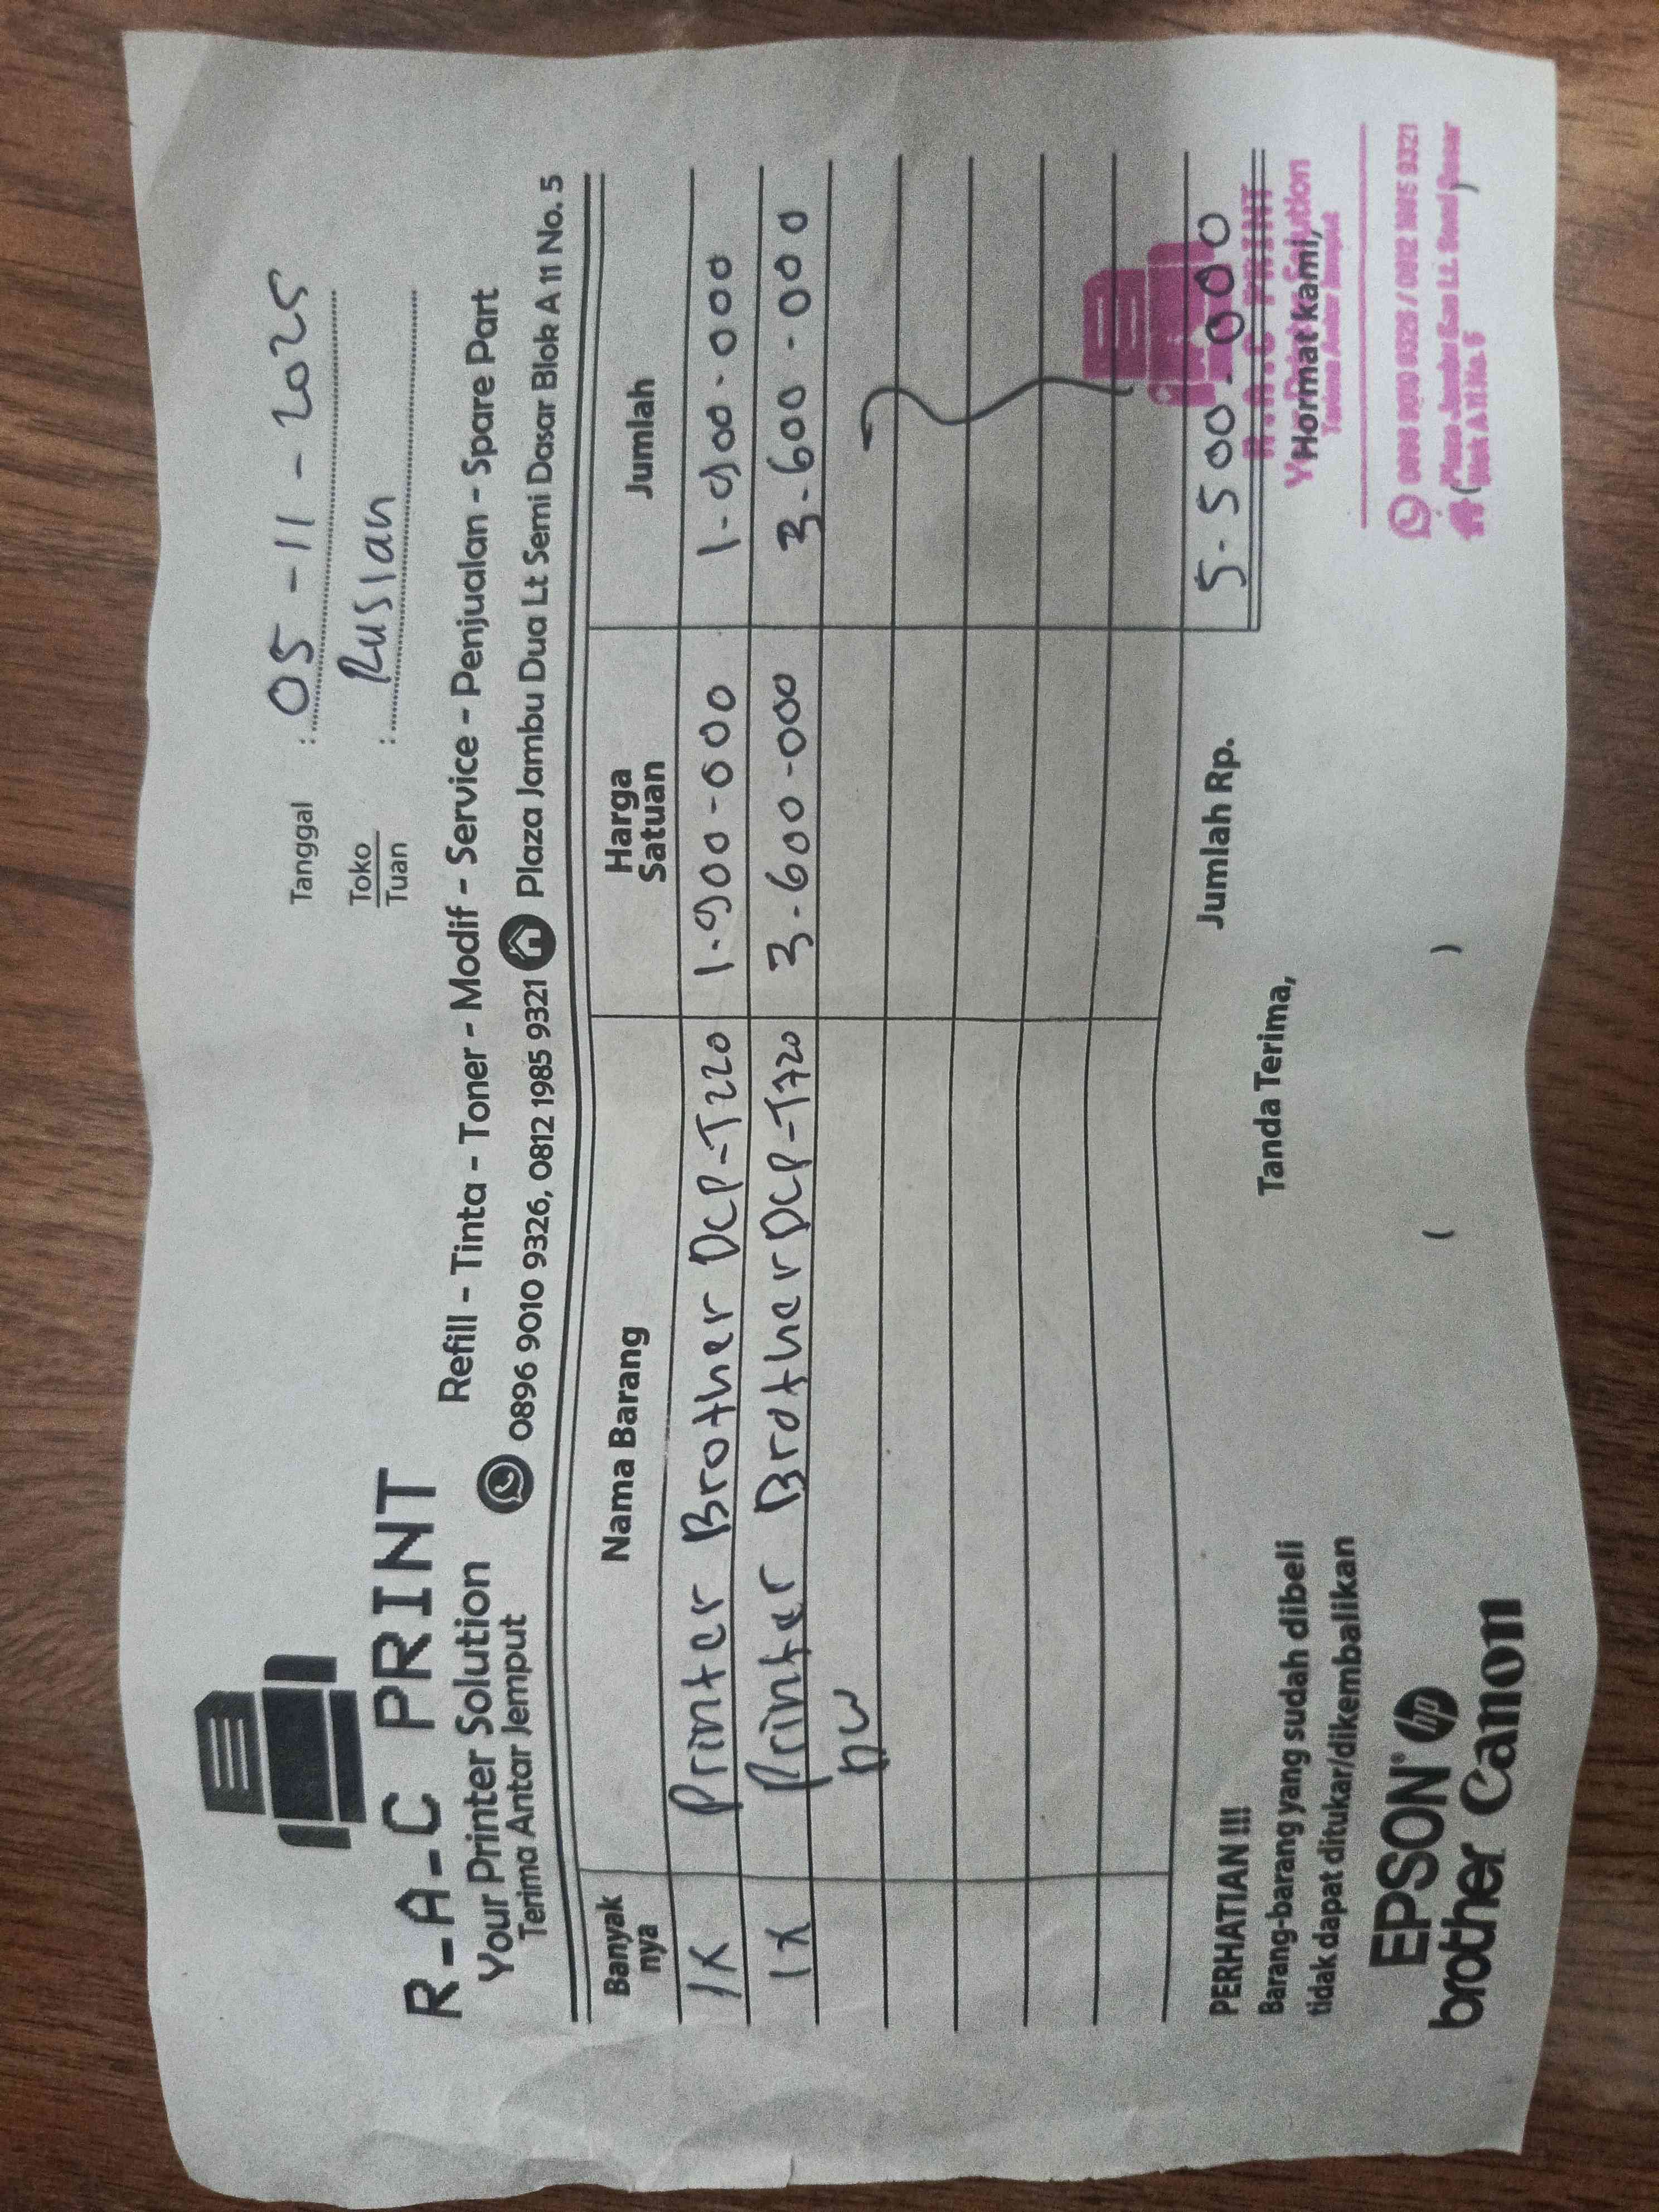 R-A-C PRINT
Your Printer Solution
Terima Antar Jemput
Tanggal : 05-11-2025
Toko
Tuan : Ruslan
Refill - Tinta - Toner - Modif - Service - Penjualan - Spare Part
0896 9010 9326, 0812 1985 9321 Plaza Jambu Dua Lt Semi Dasar Blok A 11 No. 5
Banyak nya Nama Barang Harga Satuan Jumlah
1x Printer Brother DCP-T220 1.900.000 1.900.000
1x Printer Brother DCP-T720 3.600.000 3.600.000
DW
Jumlah Rp. 5.500.000
PERHATIAN !!!
Barang-barang yang sudah dibeli
tidak dapat ditukar/dikembalikan
EPSON hp
brother Canon
Tanda Terima,
( )
Hormat kami,
( )
R-A-C PRINT
Your Printer Solution
Terima Antar Jemput
Plaza Jambu Dua Lt. Semi Dasar
Blok A 11 No. 5